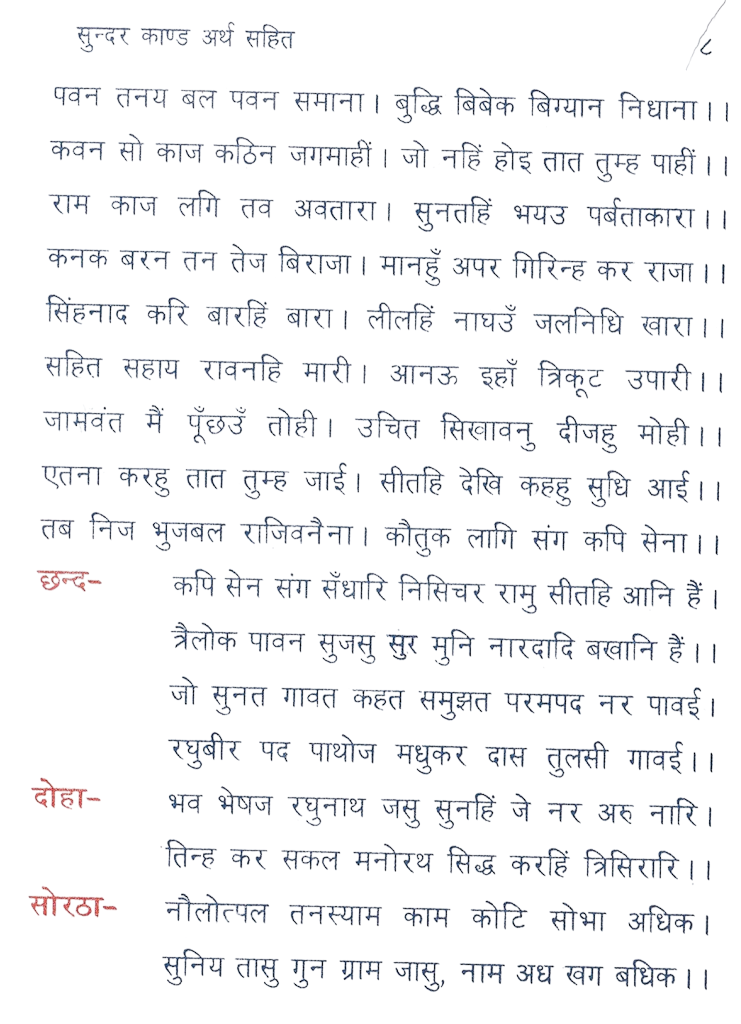 सुन्दर काण्ड अर्थ सहित
८
पवन तनय बल पवन समाना। बुद्धि बिबेक बिग्यान निधाना।।
कवन सो काज कठिन जगमाहीं। जो नहिं होइ तात तुम्ह पाहीं।।
राम काज लगि तव अवतारा। सुनतहिं भयउ पर्बताकारा।।
कनक बरन तन तेज बिराजा। मानहुँ अपर गिरिन्ह कर राजा।।
सिंहनाद करि बारहिं बारा। लीलहिं नाघउँ जलनिधि खारा।।
सहित सहाय रावनहि मारी। आनऊ इहाँ त्रिकूट उपारी।।
जामवंत मैं पूँछउँ तोही। उचित सिखावनु दीजहु मोही।।
एतना करहु तात तुम्ह जाई। सीतहि देखि कहहु सुधि आई।।
तब निज भुजबल राजिवनैना। कौतुक लागि संग कपि सेना।।
छन्द- कपि सेन संग सँधारि निसिचर रामु सीतहि आनि हैं।
त्रैलोक पावन सुजसु सुर मुनि नारदादि बखानि हैं।।
जो सुनत गावत कहत समुझत परमपद नर पावई।
रघुबीर पद पाथोज मधुकर दास तुलसी गावई।।
दोहा- भव भेषज रघुनाथ जसु सुनहिं जे नर अरु नारि।
तिन्ह कर सकल मनोरथ सिद्ध करहिं त्रिसिरारि।।
सोरठा- नौलोत्पल तनस्याम काम कोटि सोभा अधिक।
सुनिय तासु गुन ग्राम जासु, नाम अध खग बधिक।।